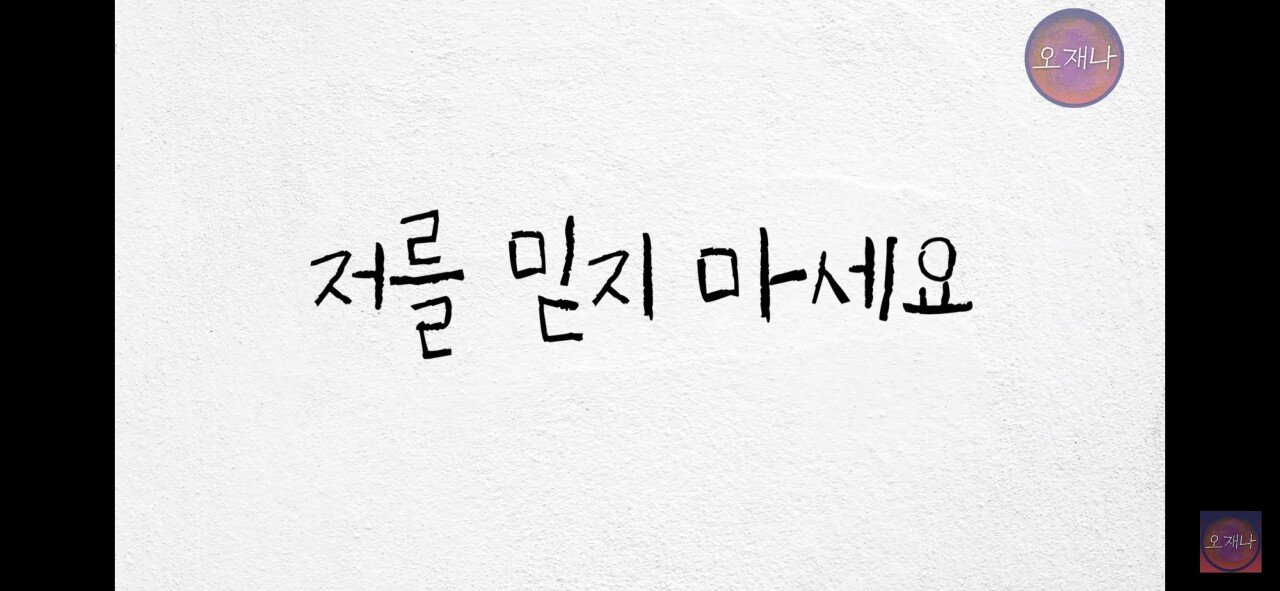 오재나
저를 믿지 마세요
오재나